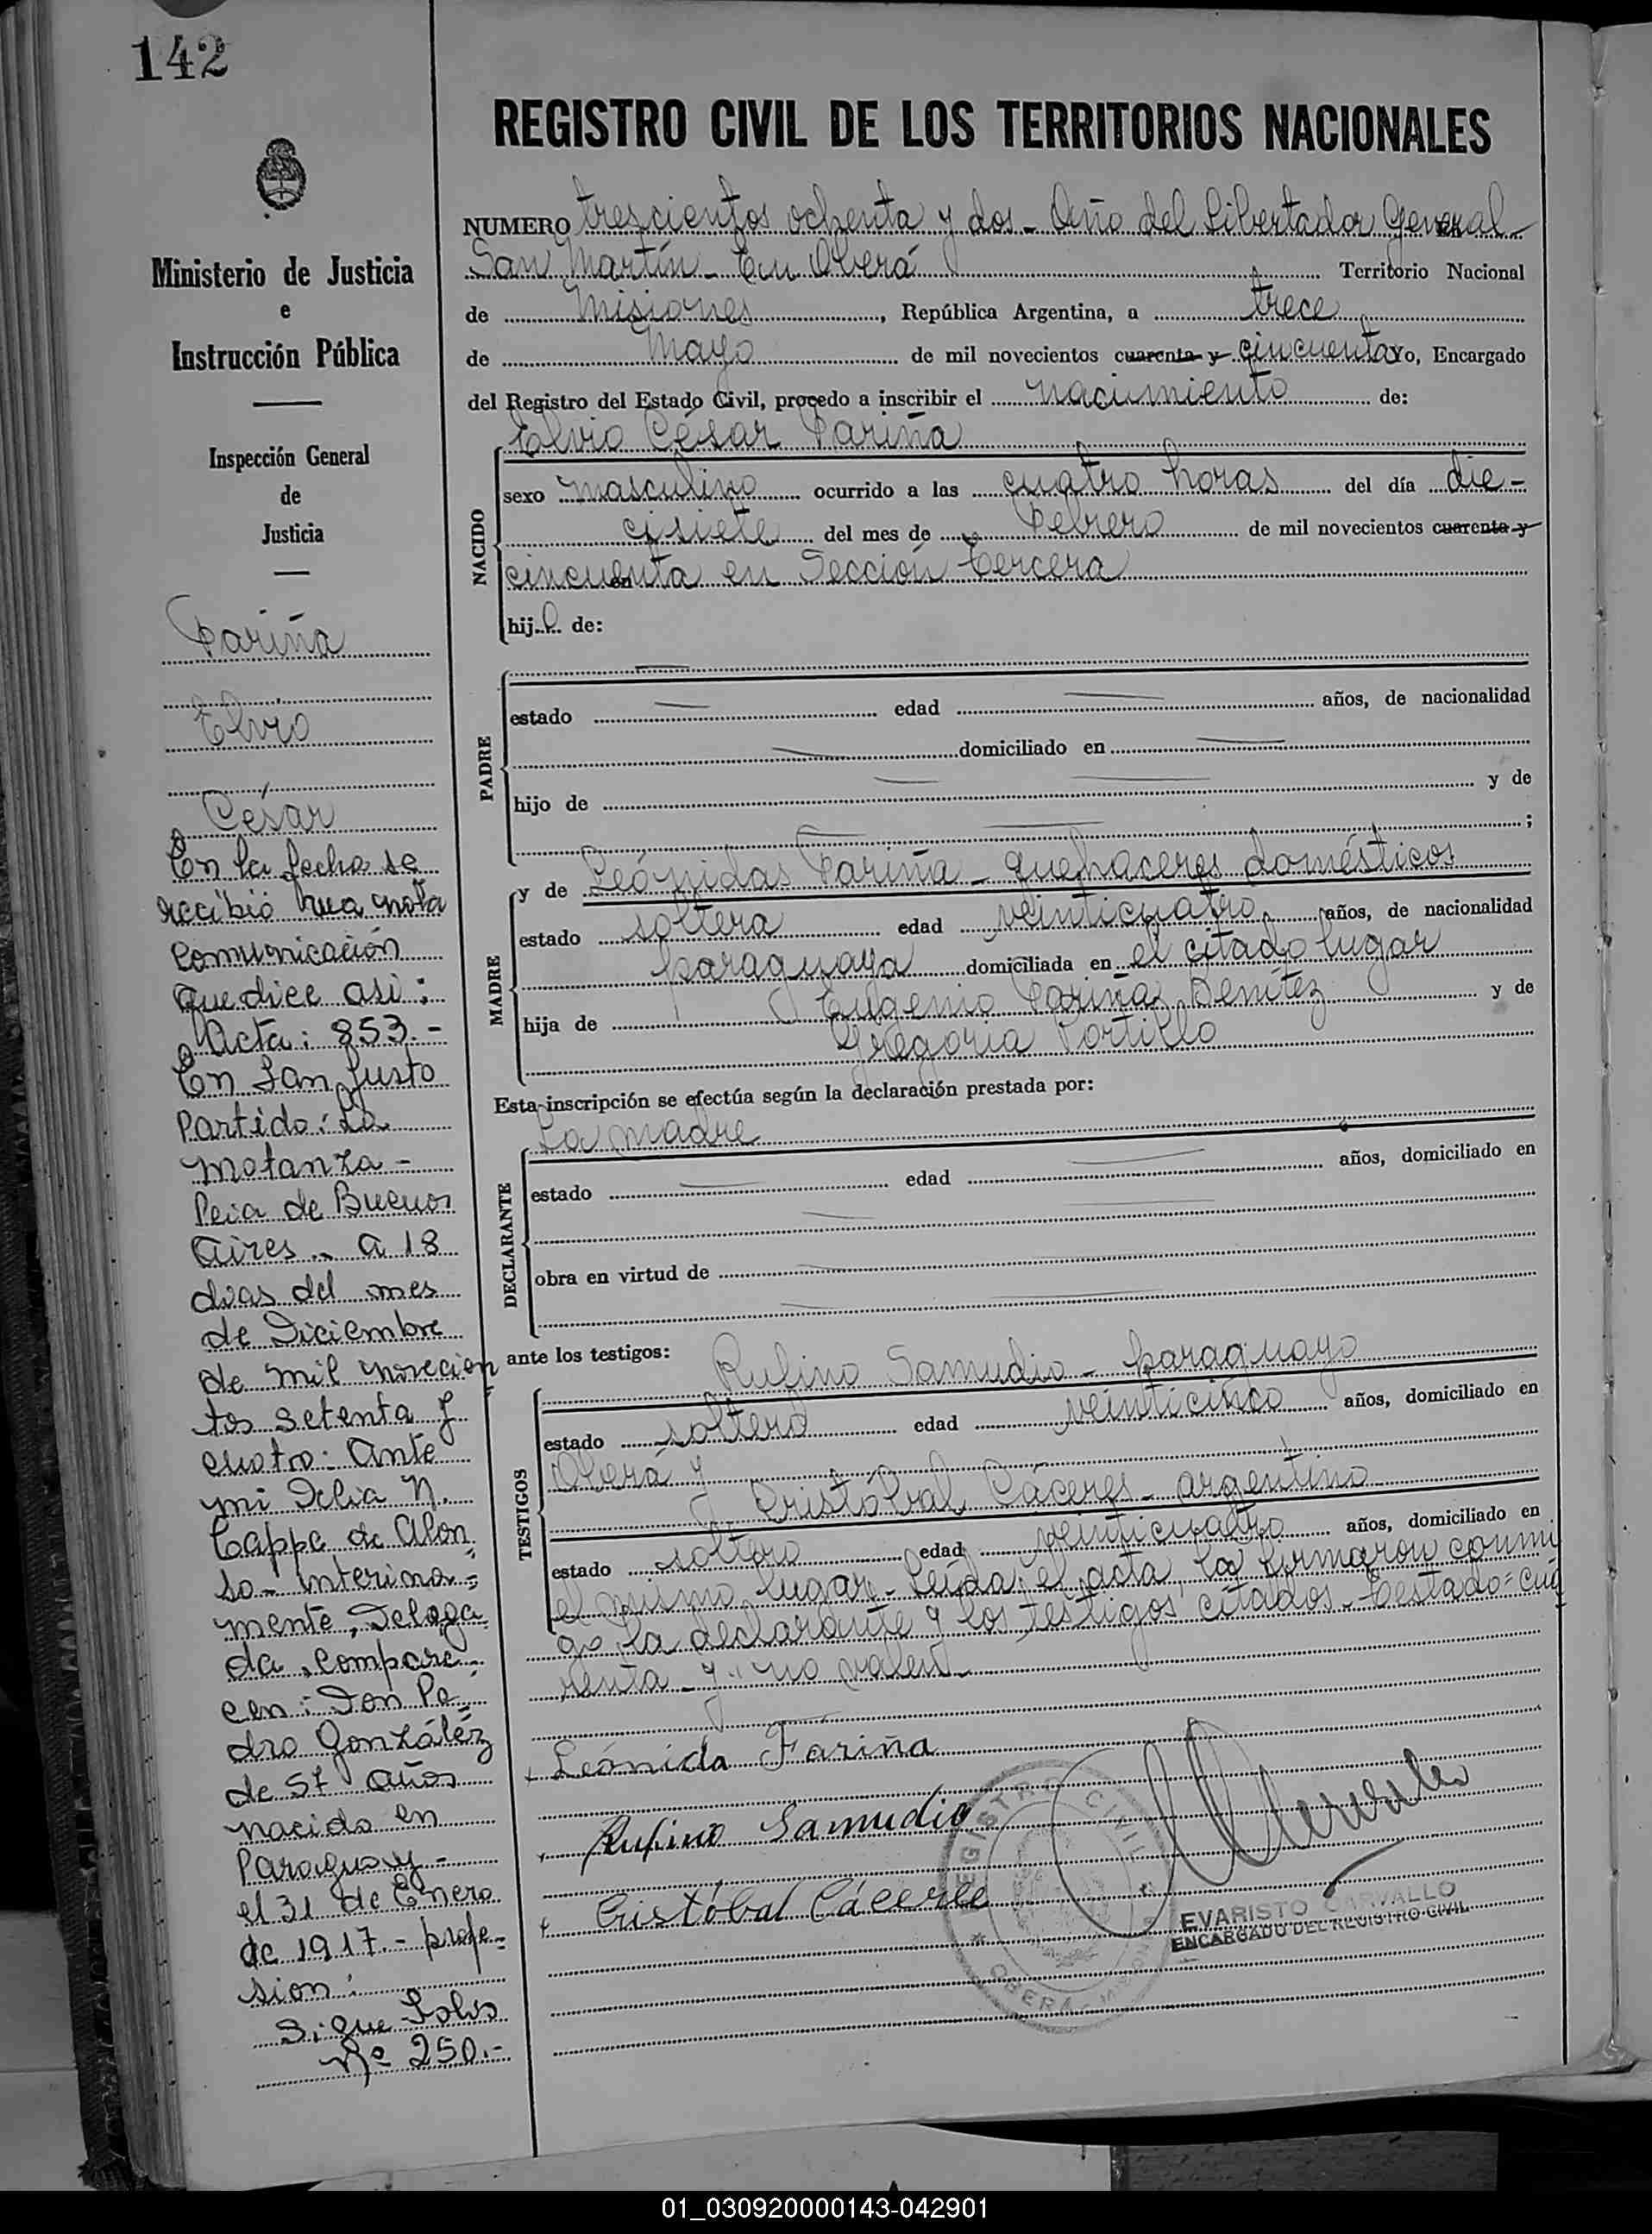 142
Ministerio de Justicia
e
Instrucción Pública
Inspección General
de
Justicia
Fariña
Elvio
César
En la fecha se
recibió una nota
comunicación
que dice así:
Acta: 853.-
En San Justo
Partido: La
Matanza -
Pcia de Buenos
Aires.. a 18
dias del mes
de Diciembre
de mil novecien
tos setenta y
cuatro: Ante
mi Delia N.
Cappa de Alon
so - interina=
mente, Delega
da, compare-
cen: Don Pe=
dro González
de 57 años
nacido en
Paraguay -
el 31 de Enero
de 1917.- profe=
sion:
Sigue Folio
Nº 250.-
REGISTRO CIVIL DE LOS TERRITORIOS NACIONALES
NUMERO trescientos ochenta y dos - Año del Libertador General
San Martín - En Oberá Territorio Nacional
de Misiones, República Argentina, a trece
de Mayo de mil novecientos cuarenta y cincuenta Yo, Encargado
del Registro del Estado Civil, procedo a inscribir el nacimiento de:
Elvio César Fariña
NACIDO
sexo masculino ocurrido a las cuatro horas del día die-
cisiete del mes de Febrero de mil novecientos cuarenta y
cincuenta en Sección Tercera
hijo de:
PADRE
estado edad años, de nacionalidad
domiciliado en
hijo de y de
;
MADRE
y de Leónidas Fariña - quehaceres domésticos
estado soltera edad veinticuatro años, de nacionalidad
paraguaya domiciliada en el citado lugar
hija de Eugenio Fariña Benítez y de
Gregoria Portillo
Esta inscripción se efectúa según la declaración prestada por:
La madre
DECLARANTE
estado edad años, domiciliado en
obra en virtud de
ante los testigos: Rufino Samudio - paraguayo
TESTIGOS
estado soltero edad veinticinco años, domiciliado en
Oberá y
Cristóbal Cáceres - argentino
estado soltero edad veinticuatro años, domiciliado en
el mismo lugar - Leída el acta, la firmaron conmi
go la declarante y los testigos citados - Testado = cua
renta - y" no valen -
Leónida Fariña
Rufino Samudio
Cristóbal Cácerle
REGISTRO CIVIL
OBERÁ
EVARISTO CARVALLO
ENCARGADO DEL REGISTRO CIVIL
01_030920000143-042901